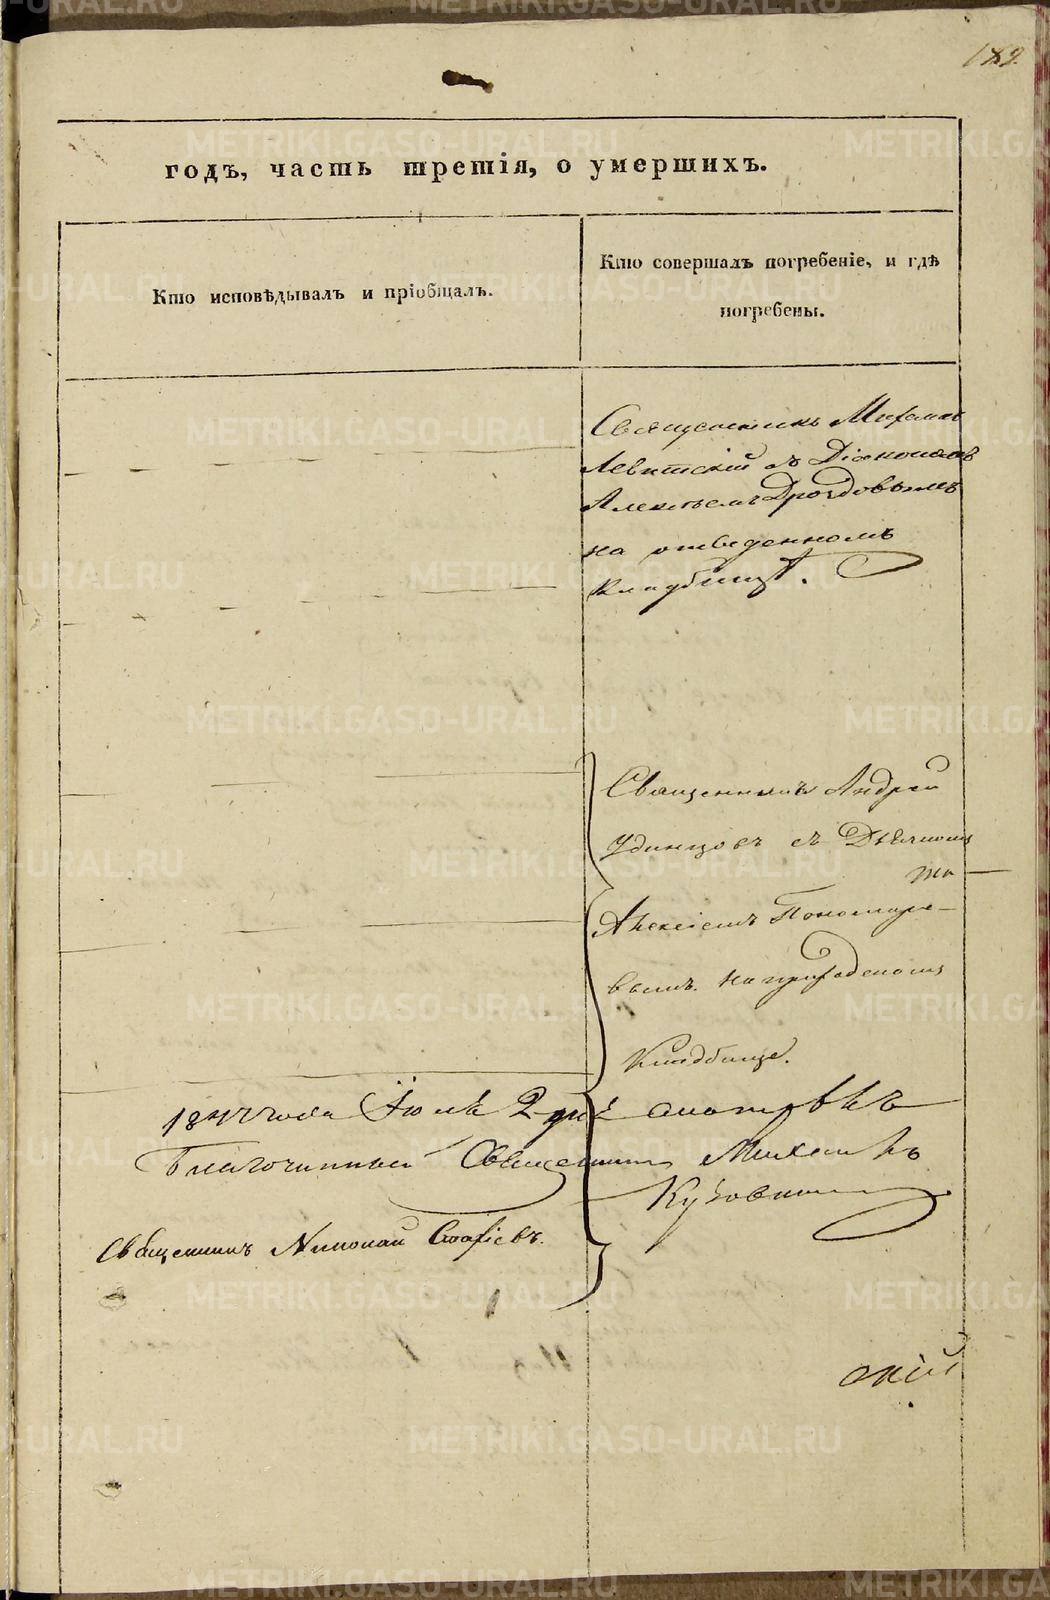 189.
годъ, часть третія, о умершихъ.
Кто исповѣдывалъ и пріобщалъ.
Кто совершалъ погребеніе, и гдѣ
погребены.
Священникъ Михаилъ
Левитскій съ Діакономъ
Алексѣемъ Дроздовымъ
на отведенномъ
кладбищѣ.
Священникъ Андрей
Удинцовъ съ Дьячкомъ
Алексіемъ Пономаре-
вымъ. на приходскомъ
Кладбище.
1844 года Іюля 2 дня смотрѣлъ
Благочинный Священникъ Михаилъ
Священникъ Николай
скій
METRIKI.GASO-URAL.RU